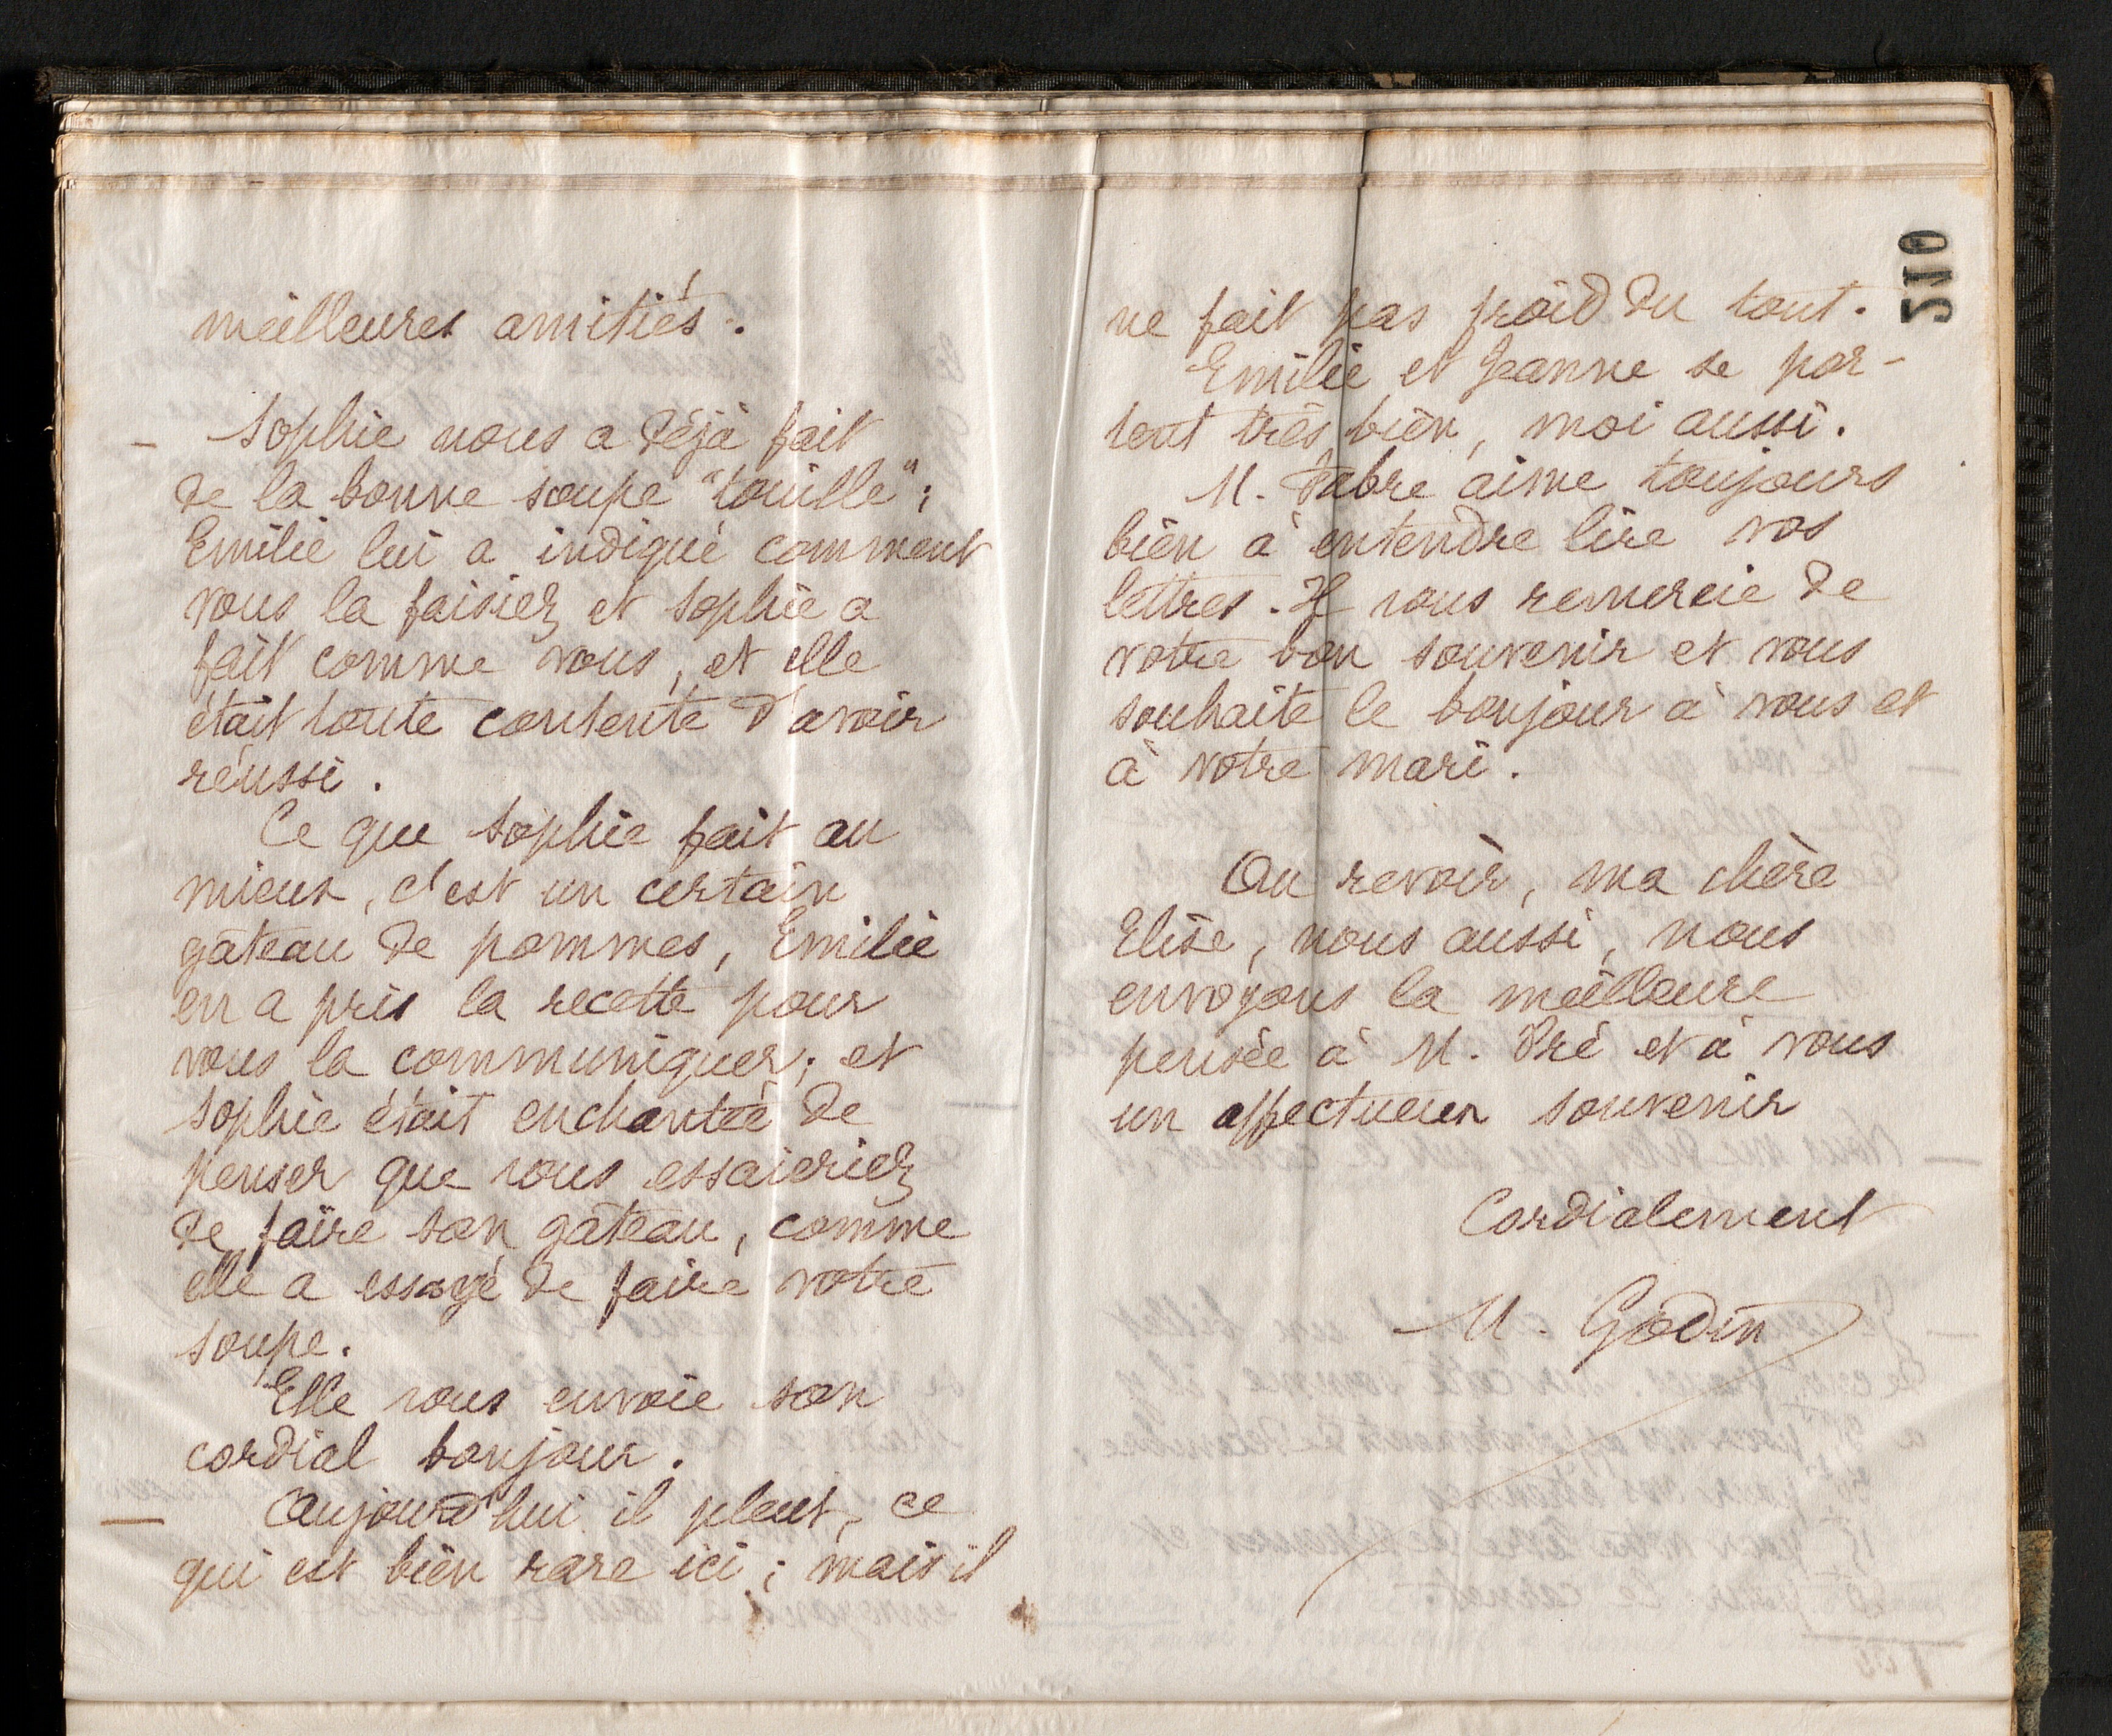 meilleures amitiés.
– Sophie nous a déjà fait
de la bonne soupe "touillé";
Emilie lui a indiqué comment
vous la faisiez et Sophie a
fait comme vous, et elle
était toute contente d'avoir
réussi.
Ce que Sophie fait au
mieux, c'est un certain
gâteau de pommes, Emilie
en a pris la recette pour
vous la communiquer; et
Sophie était enchantée de
penser que vous essaieriez
de faire son gâteau, comme
elle a essayé de faire votre
soupe.
Elle vous envoie son
cordial bonjour.
— Aujourd'hui il pleut, ce
qui est bien rare ici; mais il
510
ne fait pas froid du tout.
Emilie et Jeanne se por-
tent très bien, moi aussi.
M. Fabre aime toujours
bien à entendre lire vos
lettres. Il vous remercie de
votre bon souvenir et vous
souhaite le bonjour à vous et
à votre mari.
Au revoir, ma chère
Elise, nous aussi, nous
envoyons la meilleure
pensée à M. Pré et à vous
un affectueux souvenir
Cordialement
M. Godin